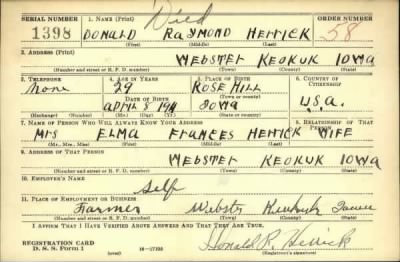 SERIAL NUMBER 1. NAME (Print) Died ORDER NUMBER
1398 DONALD RAYMOND HERRICK 58
(First) (Middle) (Last)
2. ADDRESS (Print)
WEBSTER KEOKUK IOWA
(Number and street or R. F. D. number) (Town) (County) (State)
3. TELEPHONE 4. AGE IN YEARS 5. PLACE OF BIRTH 6. COUNTRY OF CITIZENSHIP
None 29 ROSE HILL
DATE OF BIRTH (Town or county)
APRIL 8 1911 IOWA U.S.A.
(Exchange) (Number) (Mo.) (Day) (Yr.) (State or country)
7. NAME OF PERSON WHO WILL ALWAYS KNOW YOUR ADDRESS 8. RELATIONSHIP OF THAT PERSON
MRS ELMA FRANCES HERRICK WIFE
(Mr., Mrs., Miss) (First) (Middle) (Last)
9. ADDRESS OF THAT PERSON
WEBSTER KEOKUK IOWA
(Number and street or R. F. D. number) (Town) (County) (State)
10. EMPLOYER'S NAME
Self
11. PLACE OF EMPLOYMENT OR BUSINESS
Farmer Webster Keokuk Iowa
(Number and street or R. F. D. number) (Town) (County) (State)
I AFFIRM THAT I HAVE VERIFIED ABOVE ANSWERS AND THAT THEY ARE TRUE.
REGISTRATION CARD
D. S. S. Form 1 (over) 16—17105 Donald R. Herrick
(Registrant's signature)